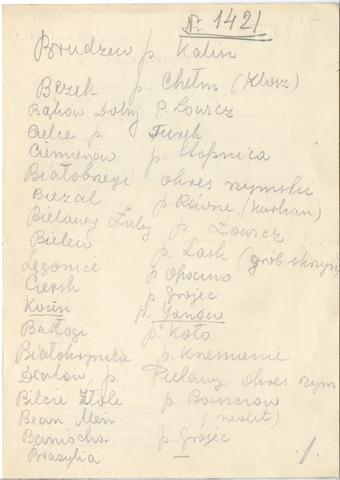 Nr 1421
Brudzew p. Kalisz
Bezek p. Chełm (Klosz)
Bąków Dolny p. Łowicz
Cielce p. Turek
Ciemienów p. Stopnica
Białobrzegi okres rzymski
Bieżal p. Równe (Kurhan)
Bielawy Łuby p. Łowicz
Bielew p. Łask (grób skrzyn
Łęgonice p. Opoczno
Ciersk p. Grójec
Kozin p. Janów
Barłogi p. Koło
Białokrynica p. Krzemieniec
Dratów p. Puławy okres rzym
Bilcze Złote p. Borszczów
Bean Men (neolit)
Baniocha p. Grójec
Brazylia